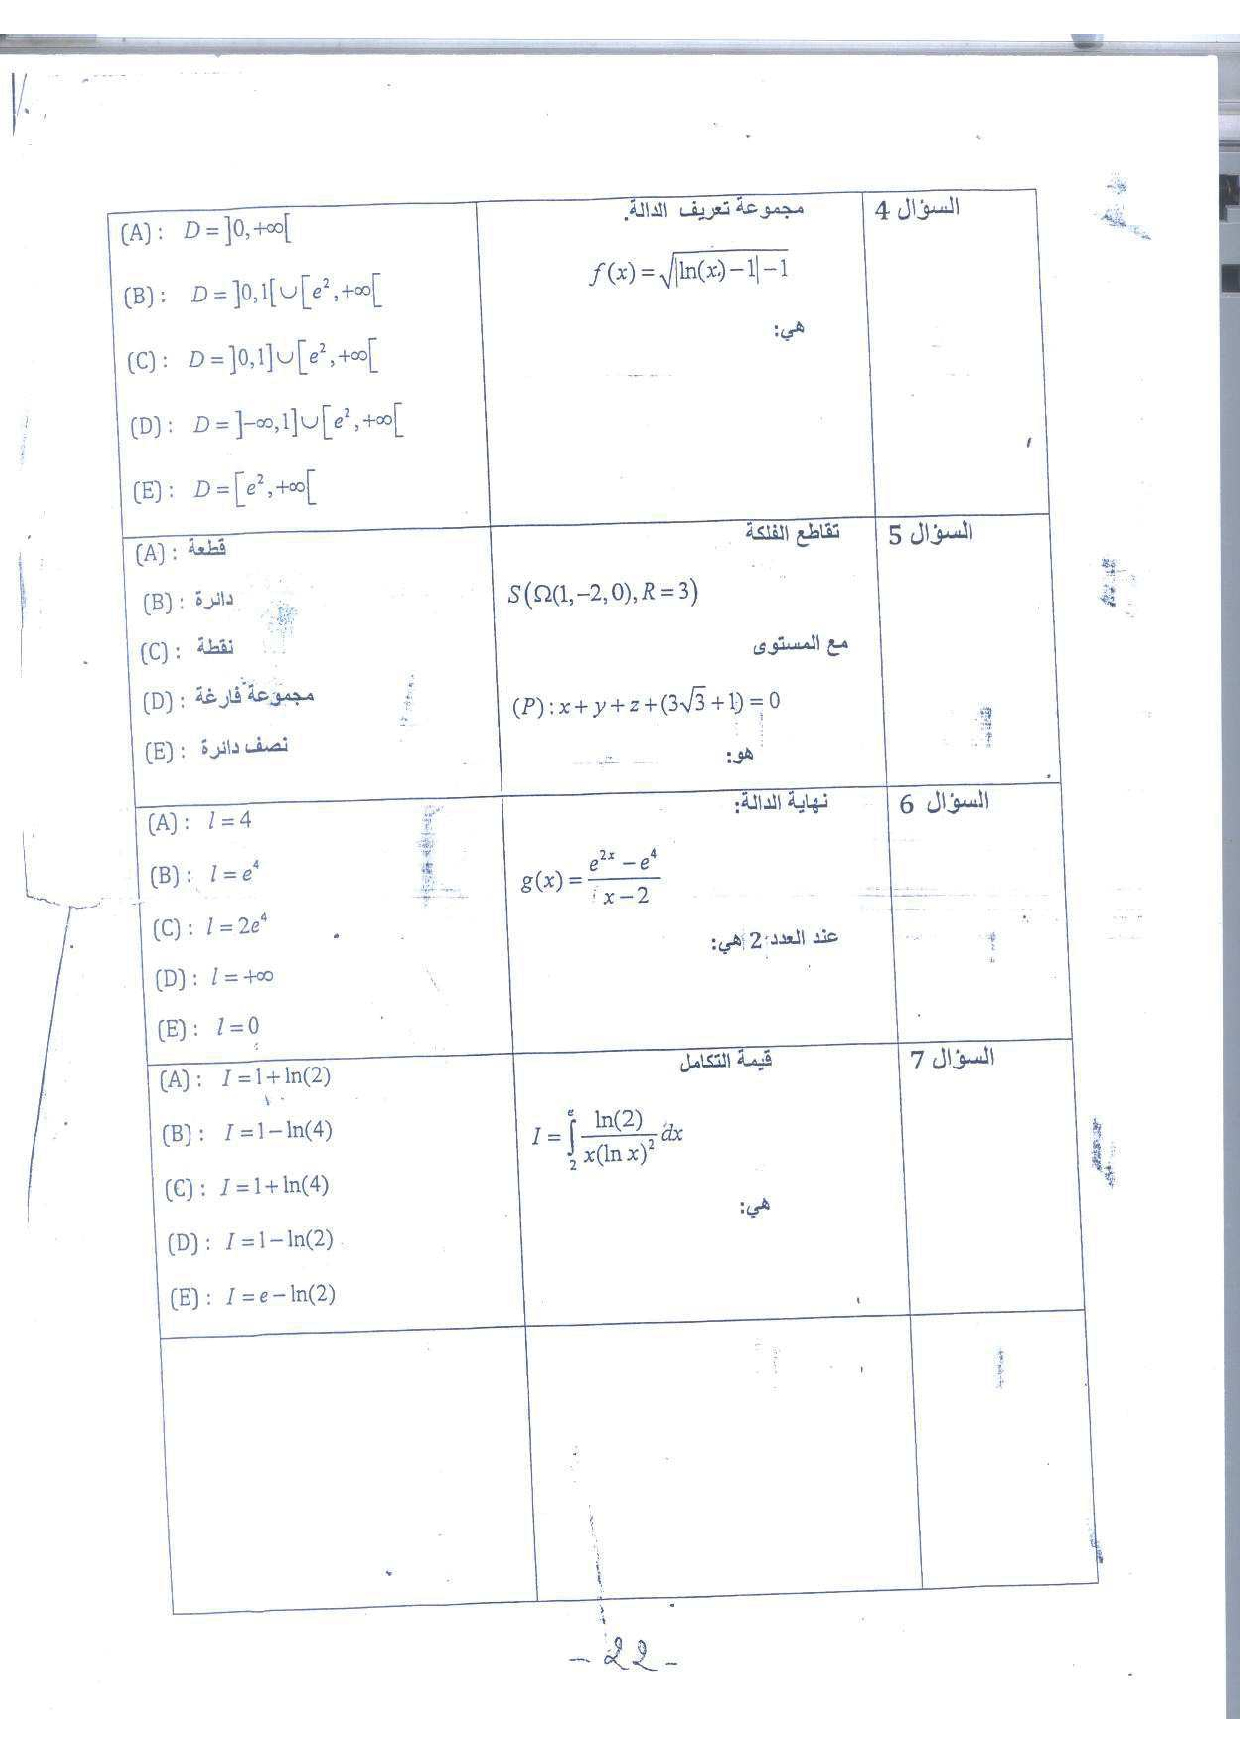 السؤال 4
مجموعة تعريف الدالة.
f(x) = √(|ln(x) − 1| − 1)
هي:
(A) : D = ]0, +∞[
(B) : D = ]0,1[ ∪ [e², +∞[
(C) : D = ]0,1] ∪ [e², +∞[
(D) : D = ]−∞,1] ∪ [e², +∞[
(E) : D = [e², +∞[
السؤال 5
تقاطع الفلكة
S(Ω(1,−2,0), R = 3)
مع المستوى
(P) : x + y + z + (3√3 + 1) = 0
هو:
(A) : قطعة
(B) : دائرة
(C) : نقطة
(D) : مجموعة فارغة
(E) : نصف دائرة
السؤال 6
نهاية الدالة:
g(x) = (e²ˣ − e⁴) / (x − 2)
عند العدد 2 هي:
(A) : l = 4
(B) : l = e⁴
(C) : l = 2e⁴
(D) : l = +∞
(E) : l = 0
السؤال 7
قيمة التكامل
I = ∫₂ᵉ ln(2) / (x(ln x)²) dx
هي:
(A) : I = 1 + ln(2)
(B) : I = 1 − ln(4)
(C) : I = 1 + ln(4)
(D) : I = 1 − ln(2)
(E) : I = e − ln(2)
- 22 -